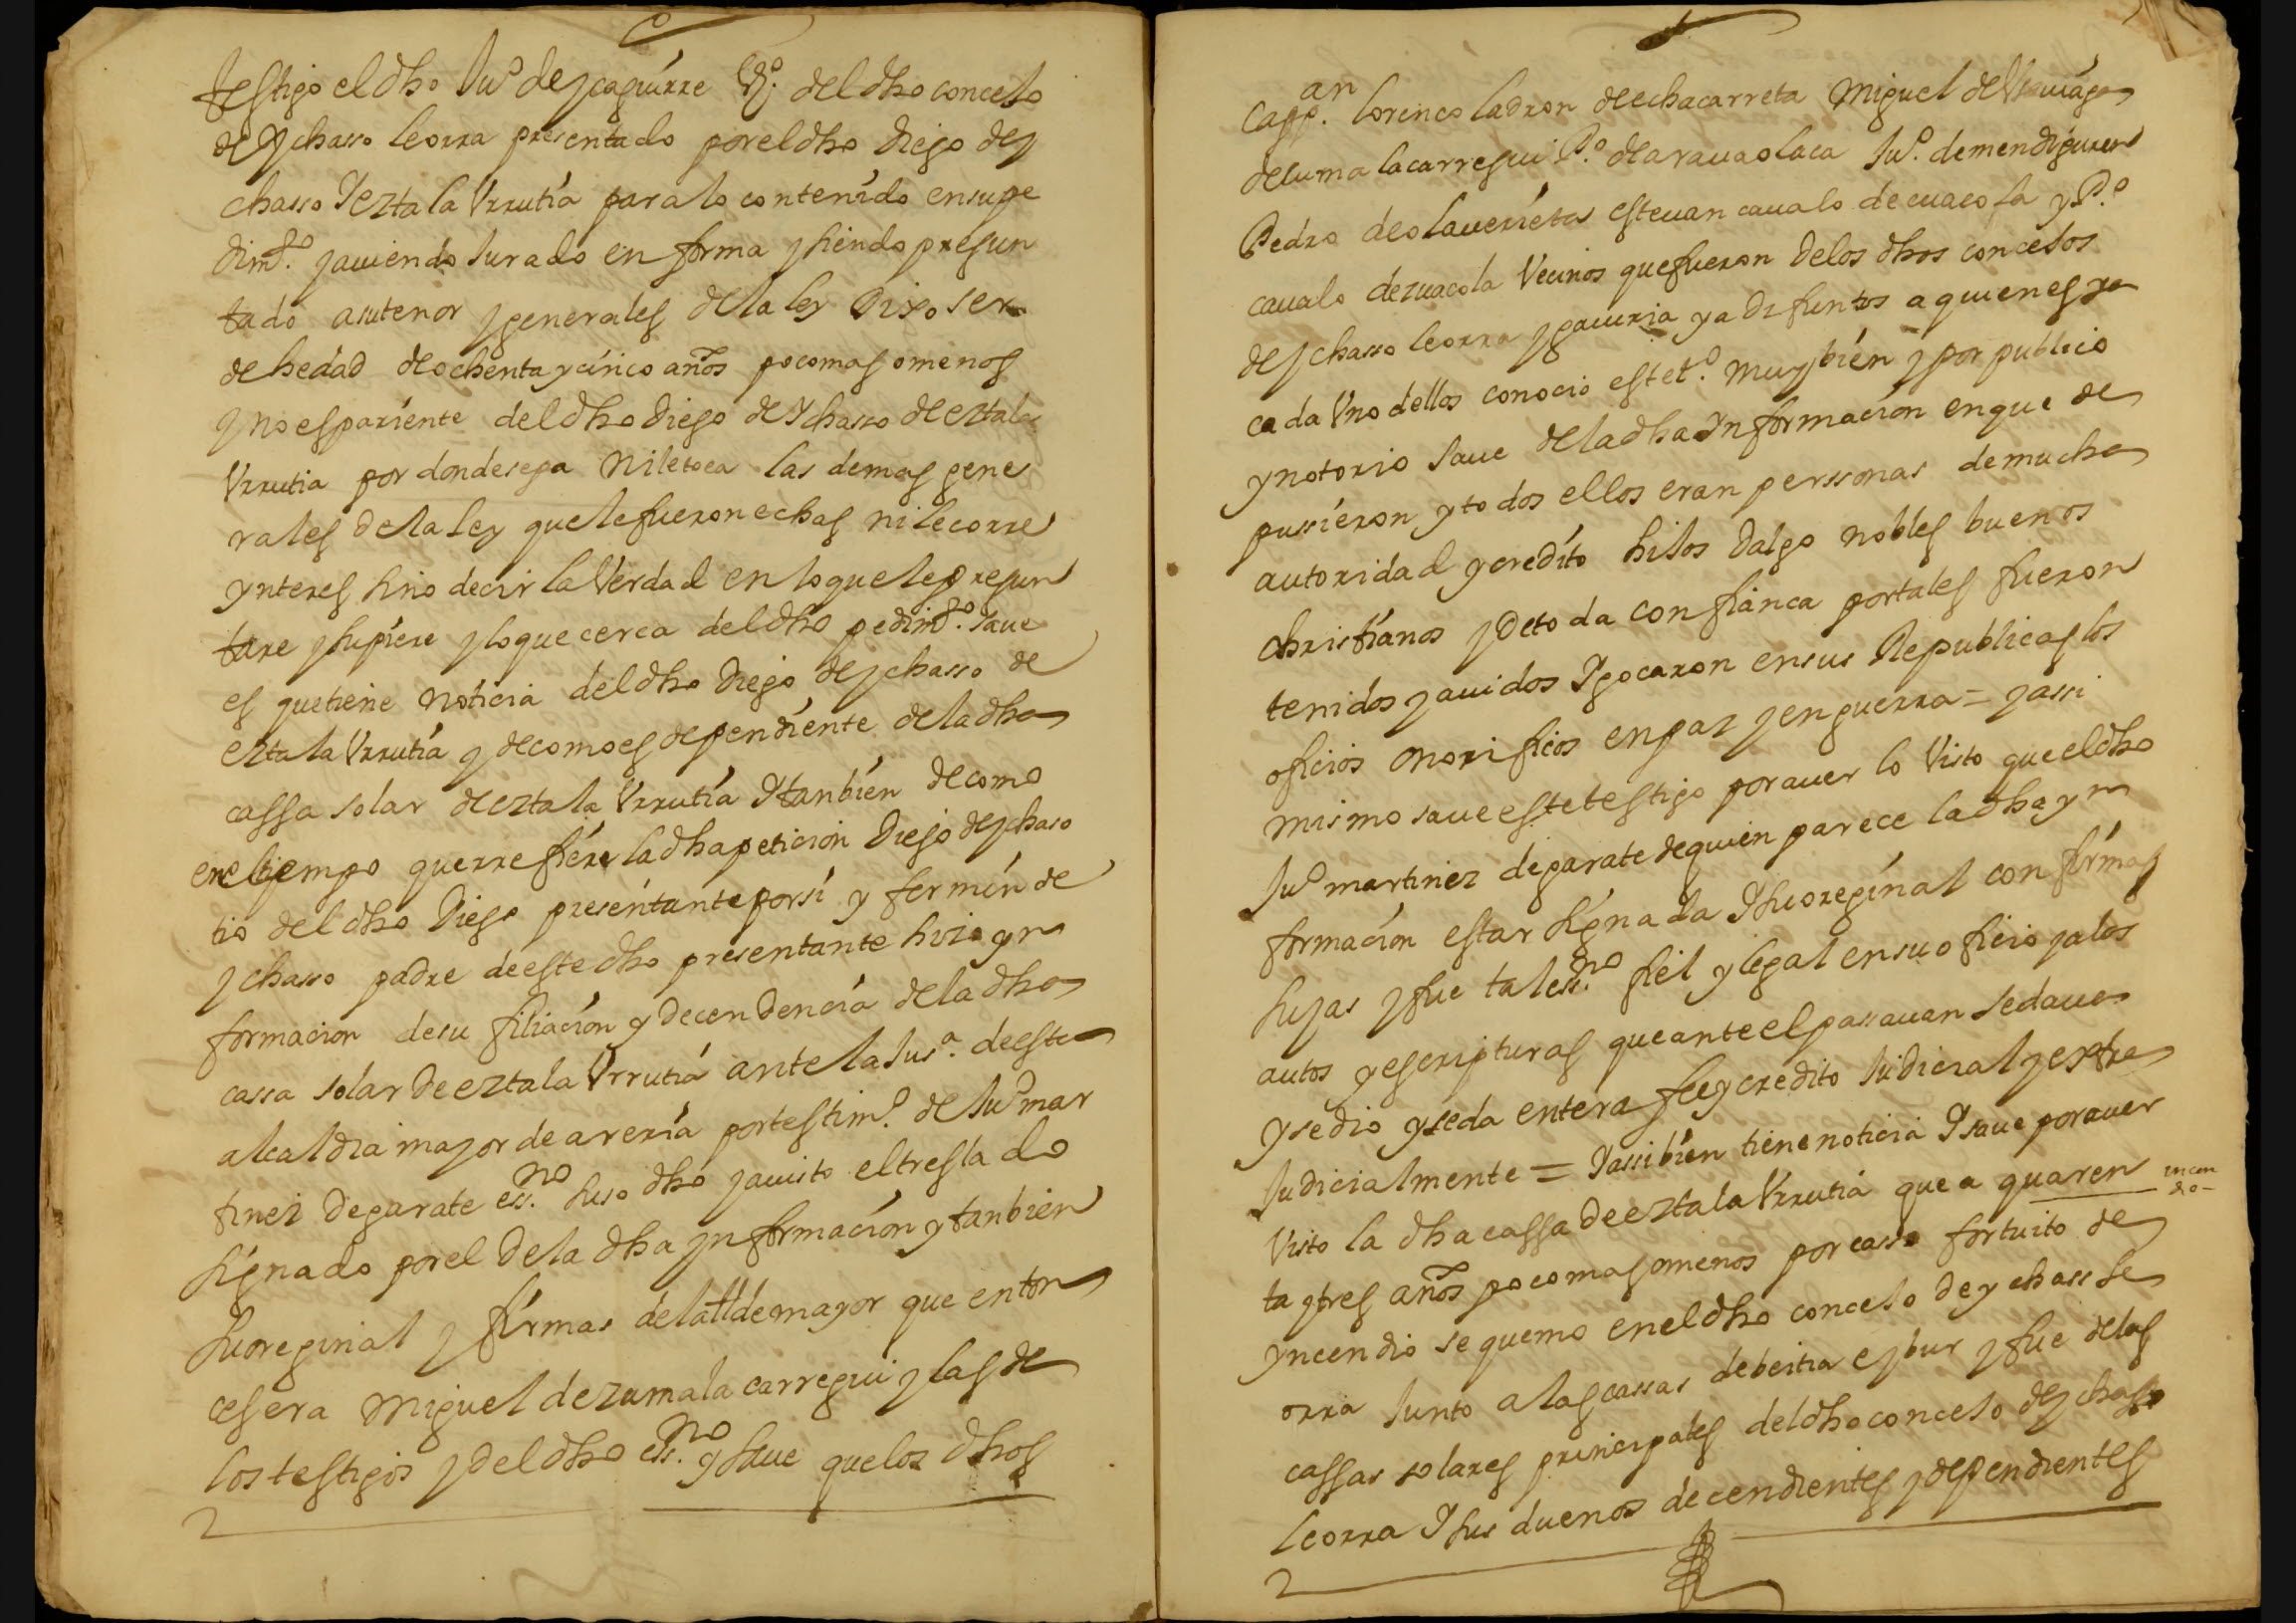 testigo el dho Juº de yçaguirre vº. del dho concejo
de ychasso leorra presentado por el dho Diego de y
chasso Yeztala Urrutia para lo contenido en su pe
dimtº. y aviendo Jurado en forma y siendo pregun
tado a su tenor y generales de la ley Dixo ser
de hedad de ochenta y cinco años poco mas o menos
y no es pariente del dho Diego de Ychasso de eztala
Urrutia por donde sepa ni le toca las demas gene
rales de la Ley que le fueron echas ni le corre
ynteres sino decir la Verdad en lo que le pregun
tare y supiere y lo que cerca del dho pedimtº. save
es que tiene noticia del dho Diego de ychasso de
eztala Urrutia y de como es dependiente de la dha
cassa solar de eztala Urrutia Y tanbien de como
en el tiempo que rrefiere la dha peticion Diego de ychaso
tio del dho Diego presentante por si y fermin de
ychasso padre de este dho presentante hizo yn
formacion de su filiacion y decendencia de la dha
cassa solar de eztala Urrutia ante la Jusª. de esta
alcaldia mayor de areria por testimº. de Juº mar
tinez de garate essno. suso dho y a visto el treslado
signado por el de la dha ynformacion y tanbien
su oreginal y firmas del allde mayor que enton
ces era Miguel de zumalacarregui y las de
los testigos y del dho essno. y save que los dhos
Cappan. lorenco ladron de echacarreta Miguel de
de zumalacarregui Pº. de aravaolaca Juº. de mendiguren
Pedro de olaverieta estevan cavalo de cuacola y Pº.
cavalo de zuacola Vecinos que fueron de los dhos concejos
de ychasso leorra y gaviria ya difuntos a quienes y a
cada Uno dellos conocio este tº. muy bien y por publico
y notorio save de la dha ynformacion en que de
pussieron y todos ellos eran perssonas de mucha
autoridad y credito hijos dalgo nobles buenos
christianos y de toda confianca por tales fueron
tenidos y avidos Y gocaron en sus Republicas los
oficios onorificos en paz y en guerra = y assi
mismo save este testigo por aver lo Visto que el dho
Juº martinez de garate de quien parece la dha yn
formacion estar signada Y su oreginal con firmas
suyas y fue tal essno. fiel y legal en su oficio y a los
autos y escripturas que ante el passavan se dava
y se dio y se da entera fee y credito Judicial y extra
Judicialmente = Y assi bien tiene noticia Y save por aver
Visto la dha cassa de eztala Urrutia que a quaren
incen
dio
ta y tres años poco mas o menos por casso fortuito de
yncendio se quemo en el dho concejo de ychasso le
orra Junto a las cassas de beitia eybur y fue de las
cassas solares principales del dho concejo de ychasso
leorra Y sus duenos decendientes y dependientes